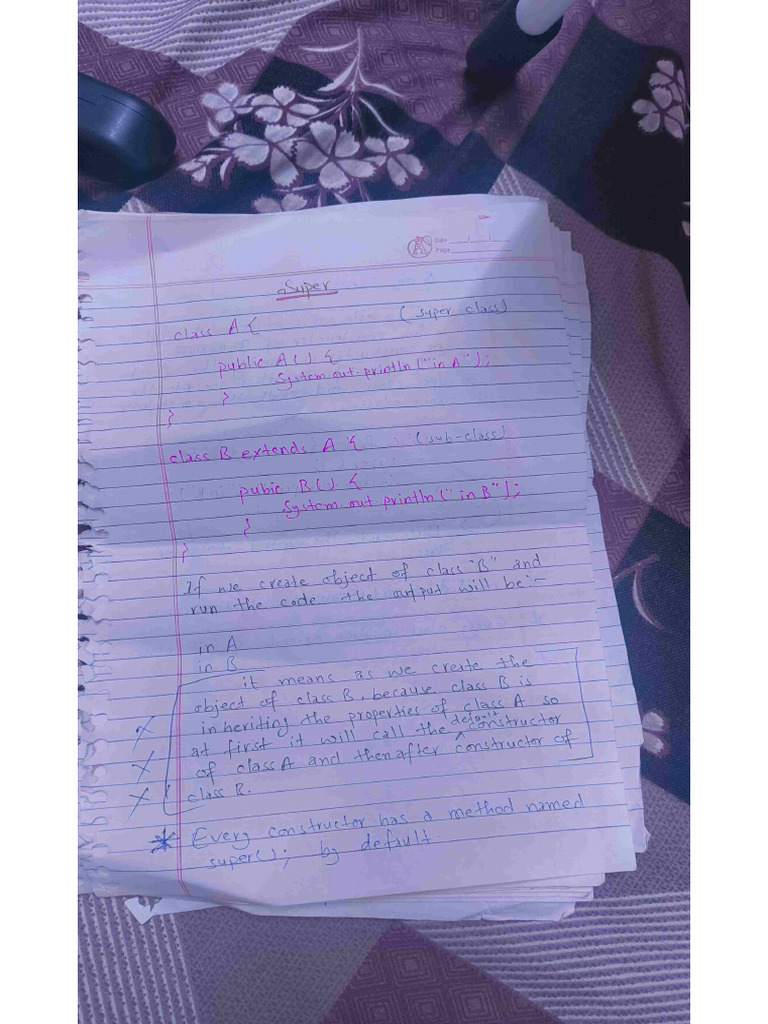 Date
Page
Super
class A { (super class)
public A() {
System.out.println("in A");
}
}
class B extends A { (sub-class)
pubic B() {
System.out println("in B");
}
}
If we create object of class "B" and
run the code the output will be:-
in A
in B
it means as we create the
object of class B, because class B is
inheriting the properties of class A so
at first it will call the default constructor
of class A and then after constructor of
class B.
* Every constructor has a method named
super(); by default.